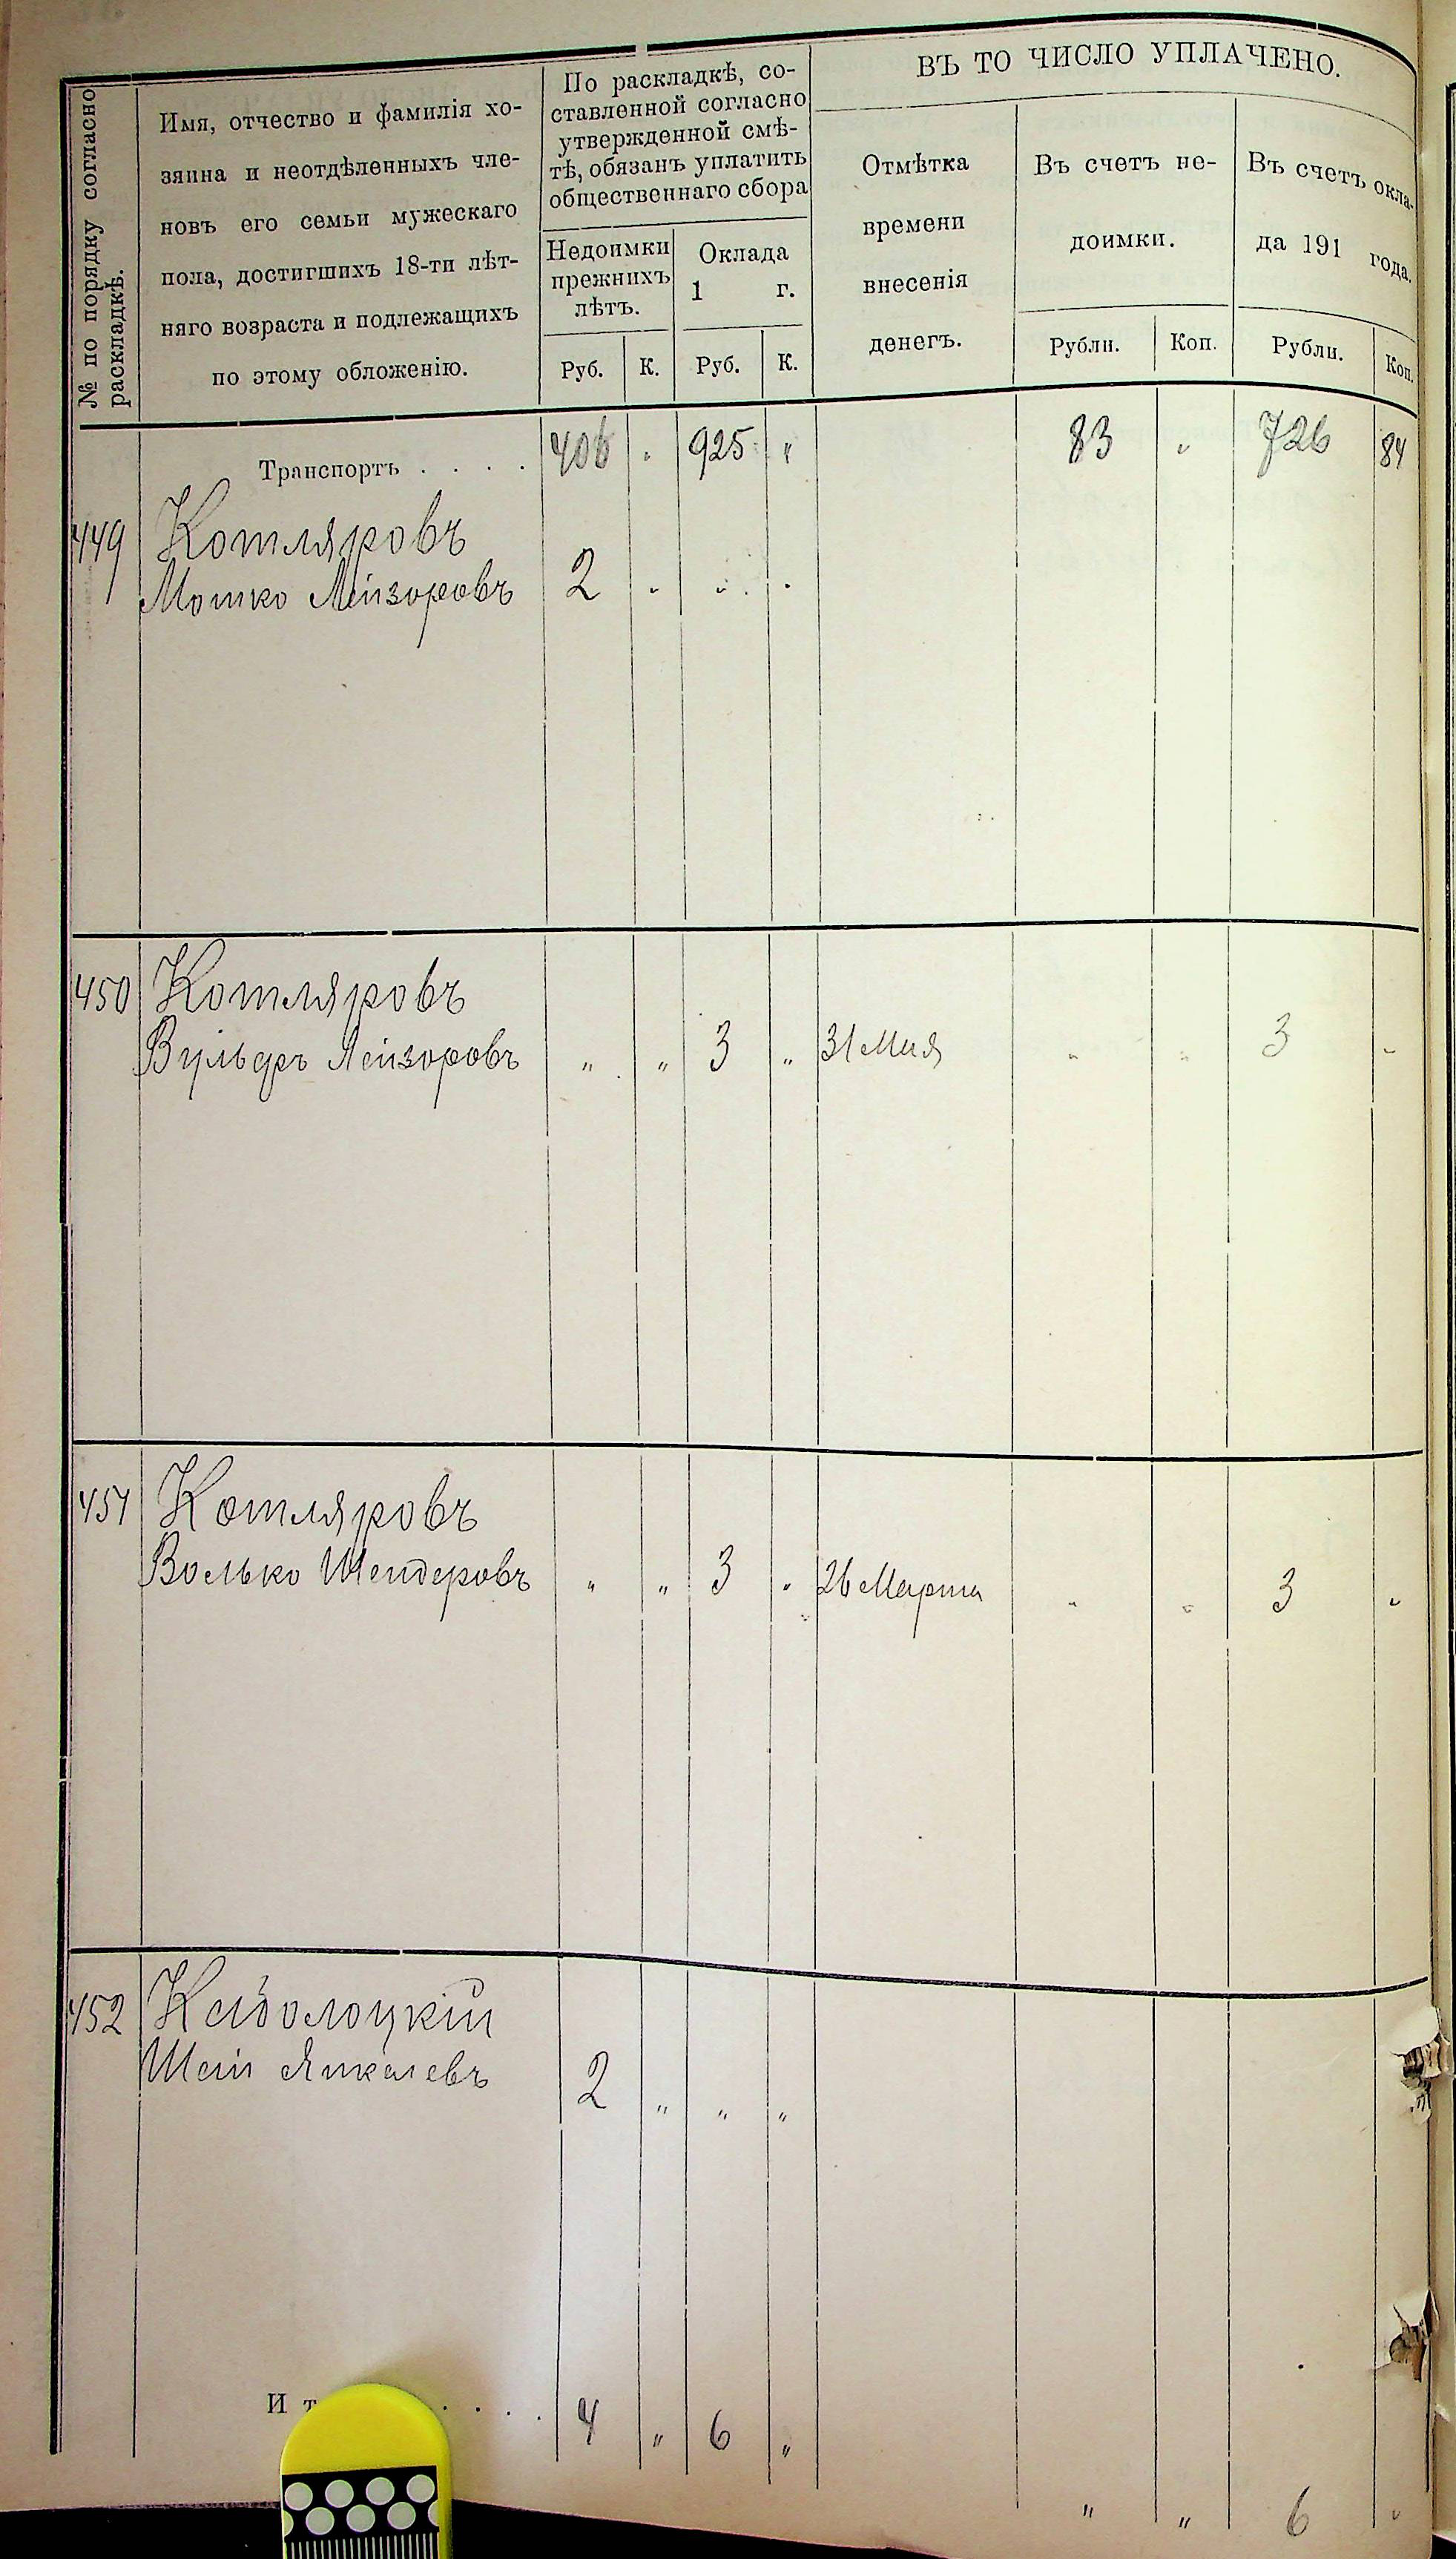 № по порядку согласно
раскладкѣ.
Имя, отчество и фамилія хо-
зяина и неотдѣленныхъ чле-
новъ его семьи мужескаго
пола, достигшихъ 18-ти лѣт-
няго возраста и подлежащихъ
по этому обложенію.
По раскладкѣ, со-
ставленной согласно
утвержденной смѣ-
тѣ, обязанъ уплатить
общественнаго сбора
Недоимки
прежнихъ
лѣтъ.
Оклада
1 г.
Руб. К. Руб. К.
ВЪ ТО ЧИСЛО УПЛАЧЕНО.
Отмѣтка
времени
внесенія
денегъ.
Въ счетъ не-
доимки.
Рубли. Коп.
Въ счетъ окла-
да 191 года.
Рубли. Коп.
Транспортъ . . . . 406 „ 925 „ 83 „ 726 84
449 Котляровъ
Мошко Лейзоровъ 2 „ „ „
450 Котляровъ
Вульфъ Лейзоровъ „ „ 3 „ 31 Мая „ „ 3 „
451 Котляровъ
Волько Шендеровъ „ „ 3 „ 26 Марта „ „ 3 „
452
Янкелевъ 2 „ „ „
И т . . . . 4 „ 6 „
„ „ 6 „